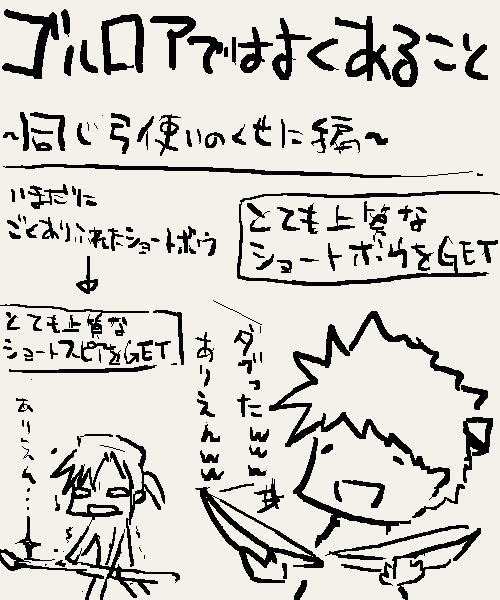 ゴルロアではよくあること
~同じ弓使いのくせに編~
いまだに
ごくありふれたショートボウ
とても上質な
ショートスピアをGET
ありえん…
とても上質な
ショートボウをGET
ダブったwww
ありえんww